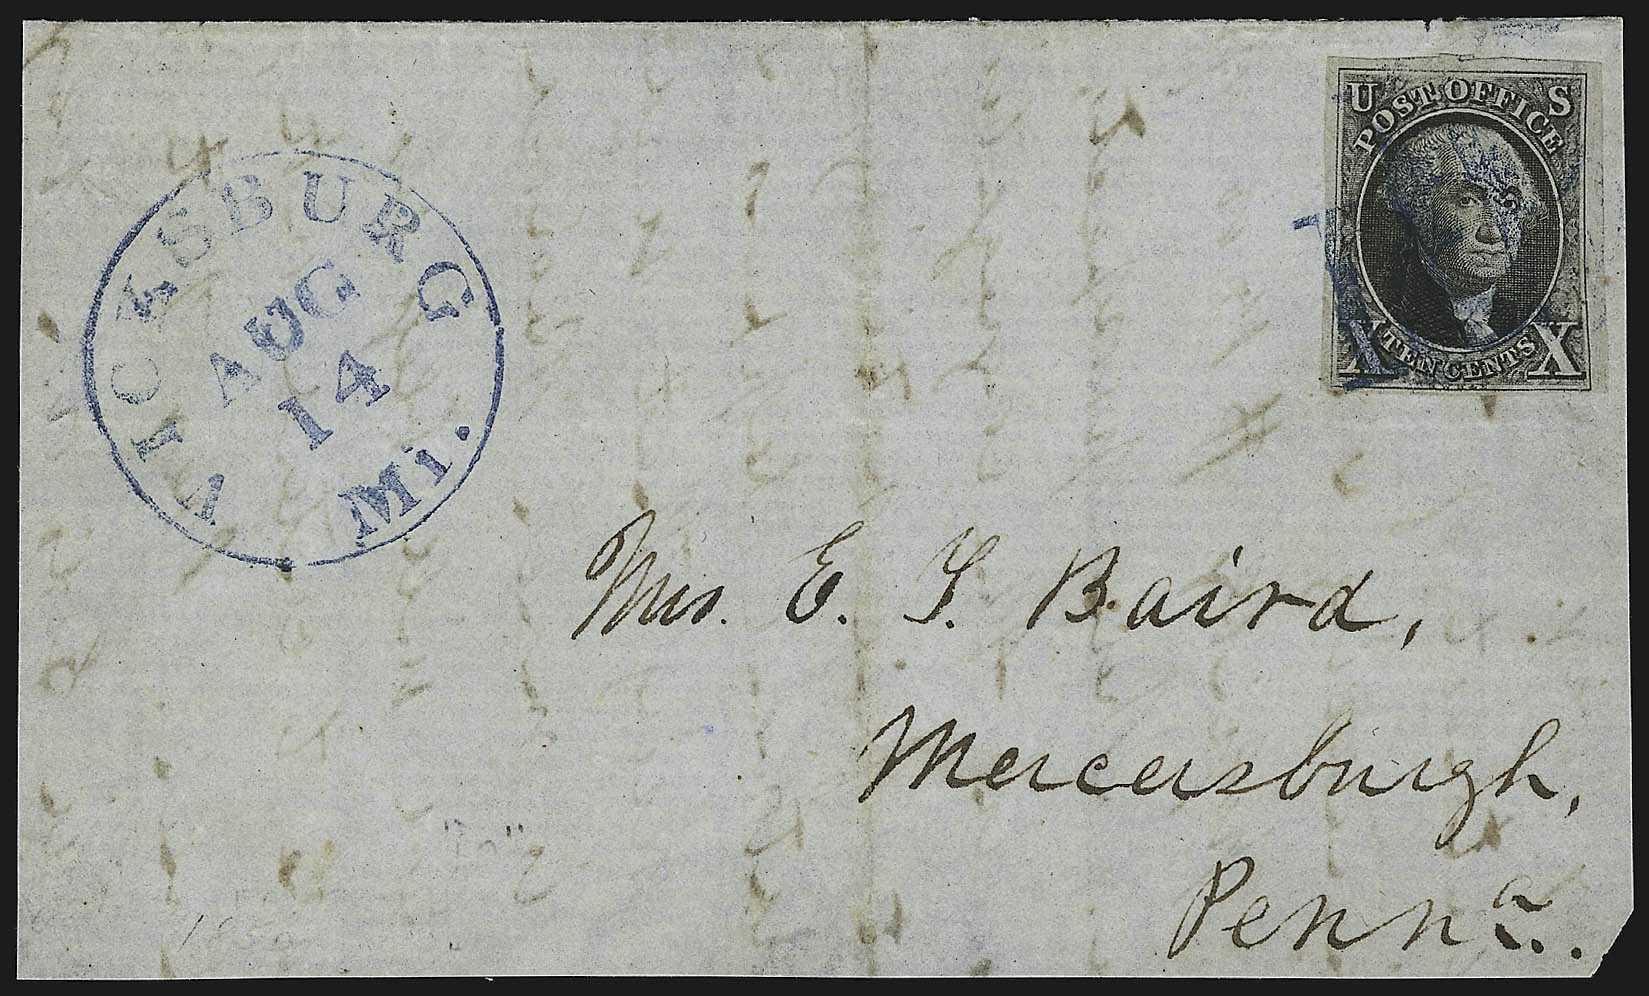 U S
POST OFFICE
X TEN CENTS X
VICKSBURG Mi.
AUG
14
Mrs. E. S. Baird,
Mercersburgh,
Penna.
1850